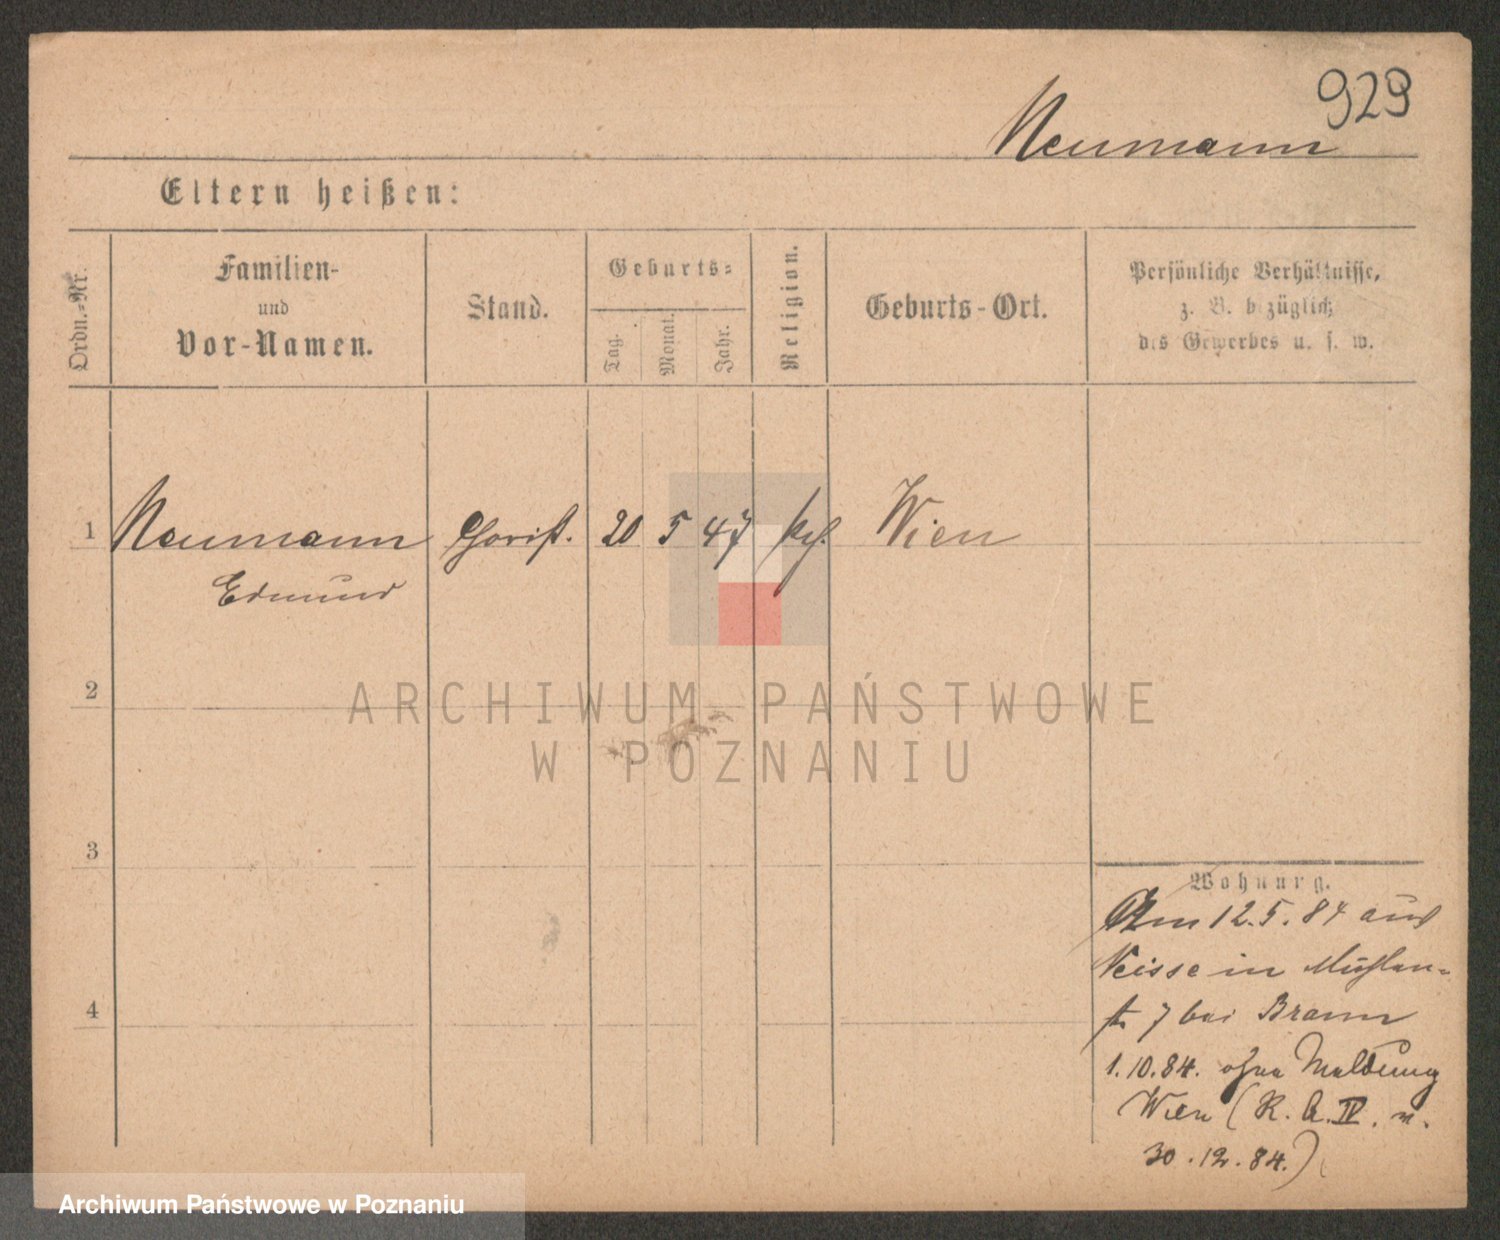 929
Neumann
Eltern heißen:
Ordn.-Nr.
Familien-
und
Vor-Namen.
Stand.
Geburts-
Tag.
Monat.
Jahr.
Religion.
Geburts-Ort.
Persönliche Verhältnisse,
z. B. bezüglich
des Gewerbes u. s. w.
1 Neumann Chorist. 20 5 47 Wien
Edmund
2
ARCHIWUM PAŃSTWOWE
W POZNANIU
3
Wohnung.
Am 12.5.84 aus
Neisse in Mühlen-
str 7 bei Braun
4
1.10.84. ohne Meldung
Wien (K. A. IV. v.
30.12.84.)
Archiwum Państwowe w Poznaniu